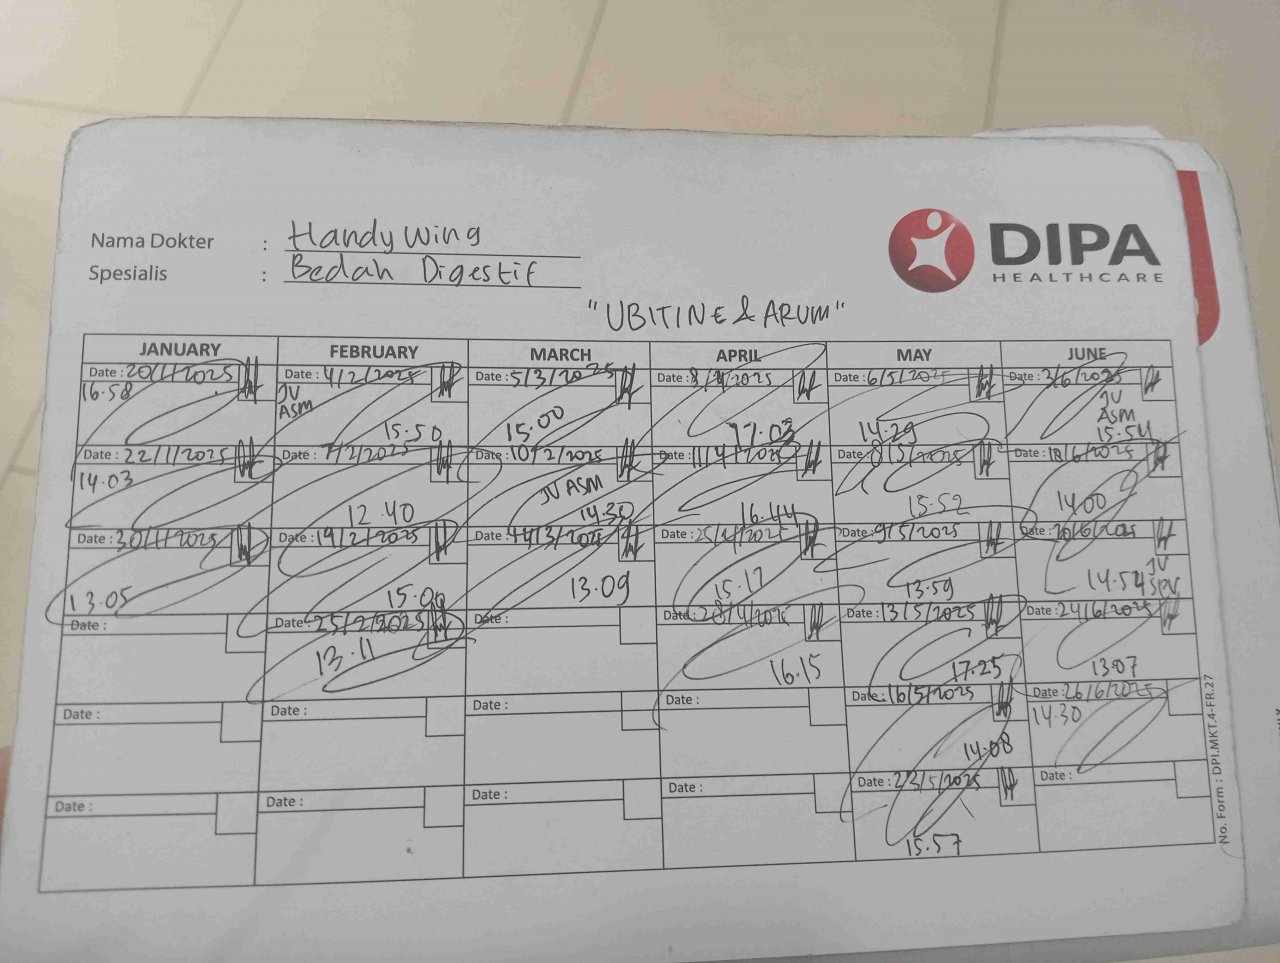 Nama Dokter : Handy Wing
Spesialis : Bedah Digestif
DIPA
HEALTHCARE
"UBITINE & ARUM"
JANUARY FEBRUARY MARCH APRIL MAY JUNE
Date : 20/1/2025 Date : 4/2/2025 Date : 5/3/2025 Date : 8/4/2025 Date : 6/5/2025 Date : 3/6/2025
16.58 JV ASM 15.50 15.00 17.03 14.29 JV ASM 15.54
Date : 22/1/2025 Date : 7/2/2025 Date : 10/2/2025 Date : 11/4/2025 Date : 8/5/2025 Date : 18/6/2025
14.03 12.40 JV ASM 14.30 16.44 15.52 14.00
Date : 30/1/2025 Date : 19/2/2025 Date : 14/3/2025 Date : 25/4/2025 Date : 9/5/2025 Date : 20/6/2025
13.05 15.00 13.09 15.17 13.59 14.54 JV SPV
Date : Date : 25/2/2025 Date : Date : 28/4/2025 Date : 13/5/2025 Date : 24/6/2025
13.11 16.15 17.25 13.07
Date : Date : Date : Date : Date : 16/5/2025 Date : 26/6/2025
14.08 14.30
Date : Date : Date : Date : Date : 23/5/2025 Date :
15.57
No. Form : DPI.MKT.4-FR.27